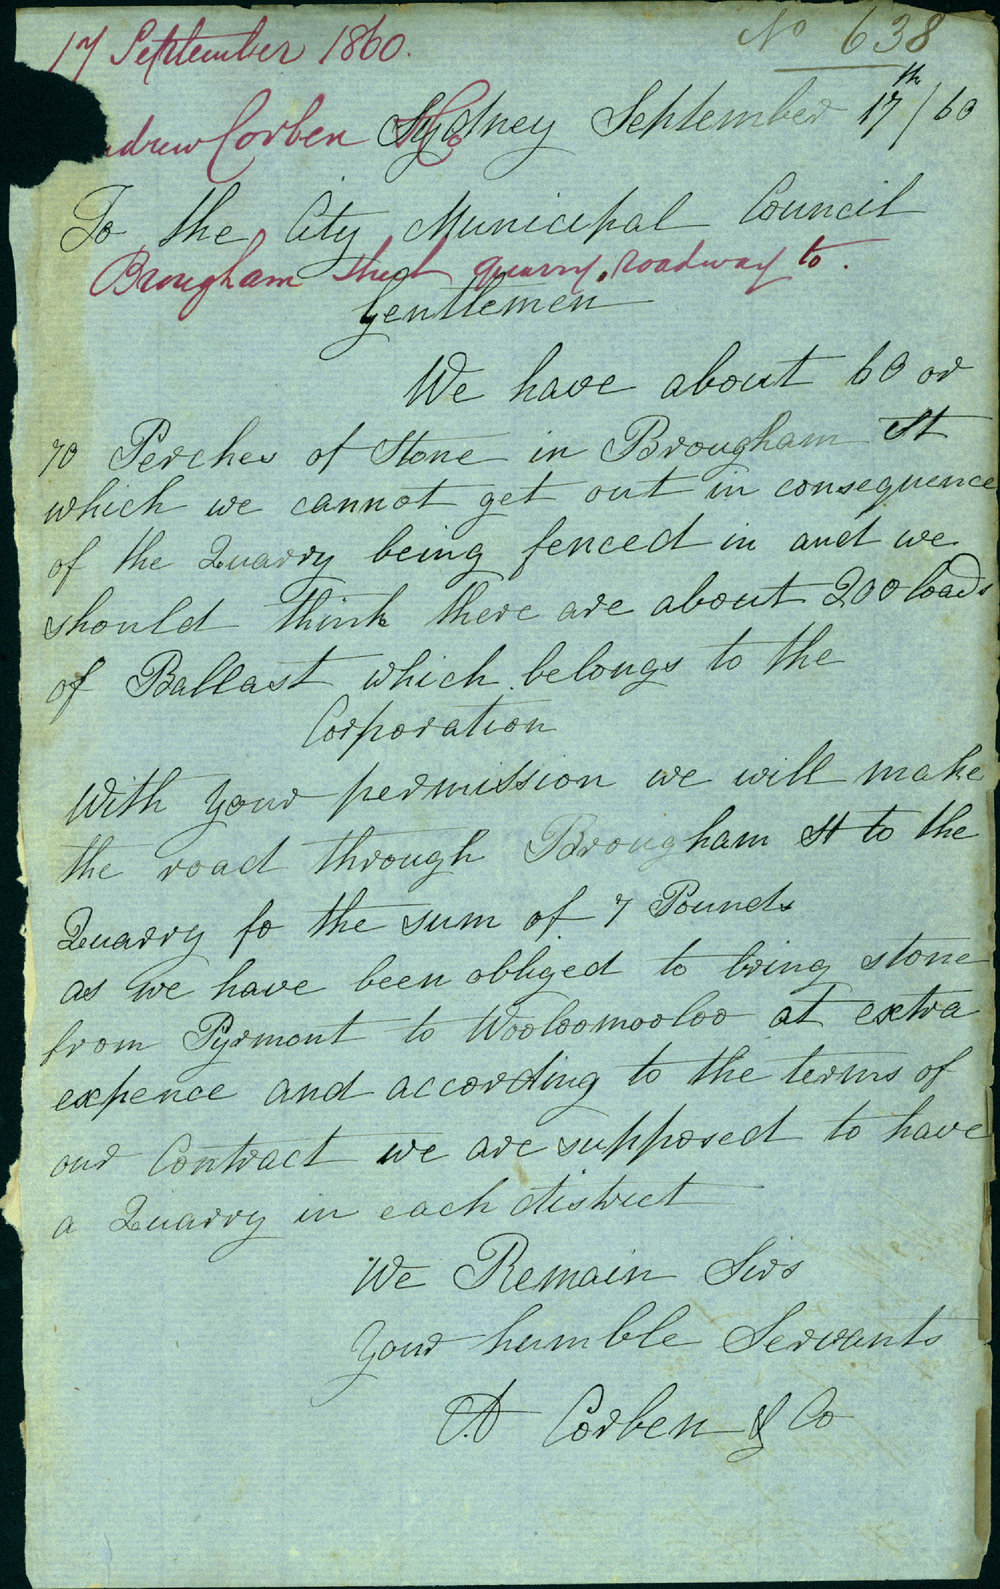 17 September 1860.
No 638
Sydney September 17th/60
drew Corben & Co
To the City Municipal Council
Brougham Street quarry, roadway to.
Gentlemen
We have about 60 or
70 Perches of Stone in Brougham St
which we cannot get out in consequence
of the Quarry being fenced in and we
should think there are about 200 loads
of Ballast which belongs to the
Corporation
With your permission we will make
the road through Brougham St to the
Quarry fo the sum of 7 Pounds
as we have been obliged to bring stone
from Pyrmont to Wooloomooloo at extra
expence and according to the terms of
our Contract we are supposed to have
a Quarry in each district
We Remain Sirs
Your humble Servants
A Corben & Co